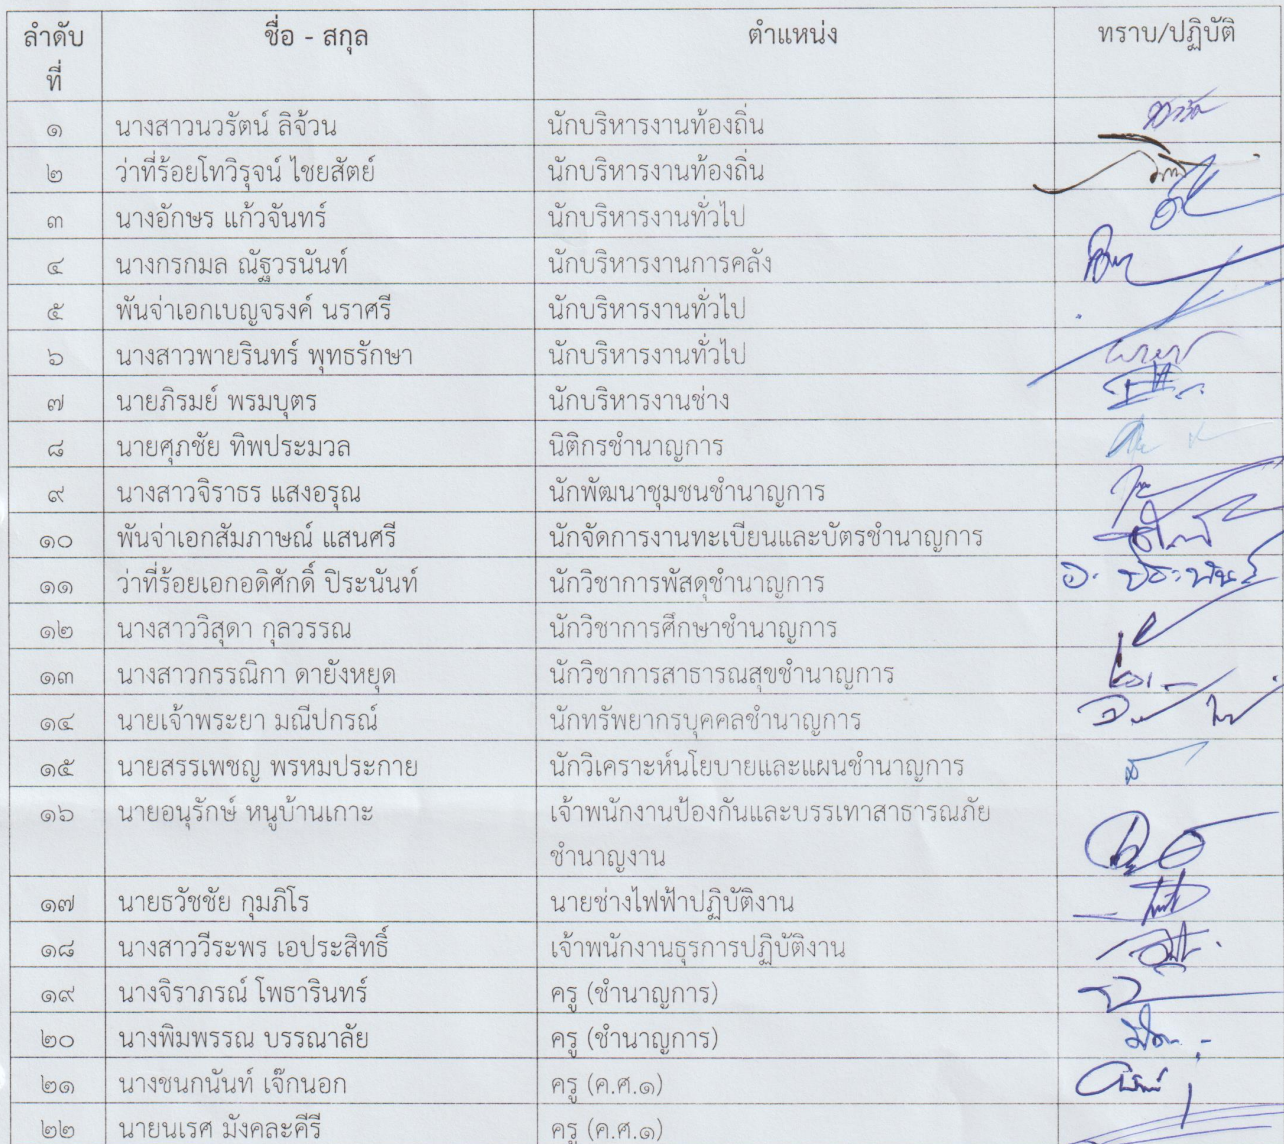 ลำดับ ชื่อ - สกุล ตำแหน่ง ทราบ/ปฏิบัติ
ที่
๑ นางสาวนวรัตน์ ลิจ้วน นักบริหารงานท้องถิ่น
๒ ว่าที่ร้อยโทวิรุจน์ ไชยสัตย์ นักบริหารงานท้องถิ่น
๓ นางอักษร แก้วจันทร์ นักบริหารงานทั่วไป
๔ นางกรกมล ณัฐวรนันท์ นักบริหารงานการคลัง
๕ พันจ่าเอกเบญจรงค์ นราศรี นักบริหารงานทั่วไป
๖ นางสาวพายรินทร์ พุทธรักษา นักบริหารงานทั่วไป
๗ นายภิรมย์ พรมบุตร นักบริหารงานช่าง
๘ นายศุภชัย ทิพประมวล นิติกรชำนาญการ
๙ นางสาวจิราธร แสงอรุณ นักพัฒนาชุมชนชำนาญการ
๑๐ พันจ่าเอกสัมภาษณ์ แสนศรี นักจัดการงานทะเบียนและบัตรชำนาญการ
๑๑ ว่าที่ร้อยเอกอดิศักดิ์ ปิระนันท์ นักวิชาการพัสดุชำนาญการ
๑๒ นางสาววิสุดา กุลวรรณ นักวิชาการศึกษาชำนาญการ
๑๓ นางสาวกรรณิกา ดายังหยุด นักวิชาการสาธารณสุขชำนาญการ
๑๔ นายเจ้าพระยา มณีปกรณ์ นักทรัพยากรบุคคลชำนาญการ
๑๕ นายสรรเพชญ พรหมประกาย นักวิเคราะห์นโยบายและแผนชำนาญการ
๑๖ นายอนุรักษ์ หนูบ้านเกาะ เจ้าพนักงานป้องกันและบรรเทาสาธารณภัย
ชำนาญงาน
๑๗ นายธวัชชัย กุมภิโร นายช่างไฟฟ้าปฏิบัติงาน
๑๘ นางสาววีระพร เอประสิทธิ์ เจ้าพนักงานธุรการปฏิบัติงาน
๑๙ นางจิราภรณ์ โพธารินทร์ ครู (ชำนาญการ)
๒๐ นางพิมพรรณ บรรณาลัย ครู (ชำนาญการ)
๒๑ นางชนกนันท์ เจ๊กนอก ครู (ค.ศ.๑)
๒๒ นายนเรศ มังคละคีรี ครู (ค.ศ.๑)